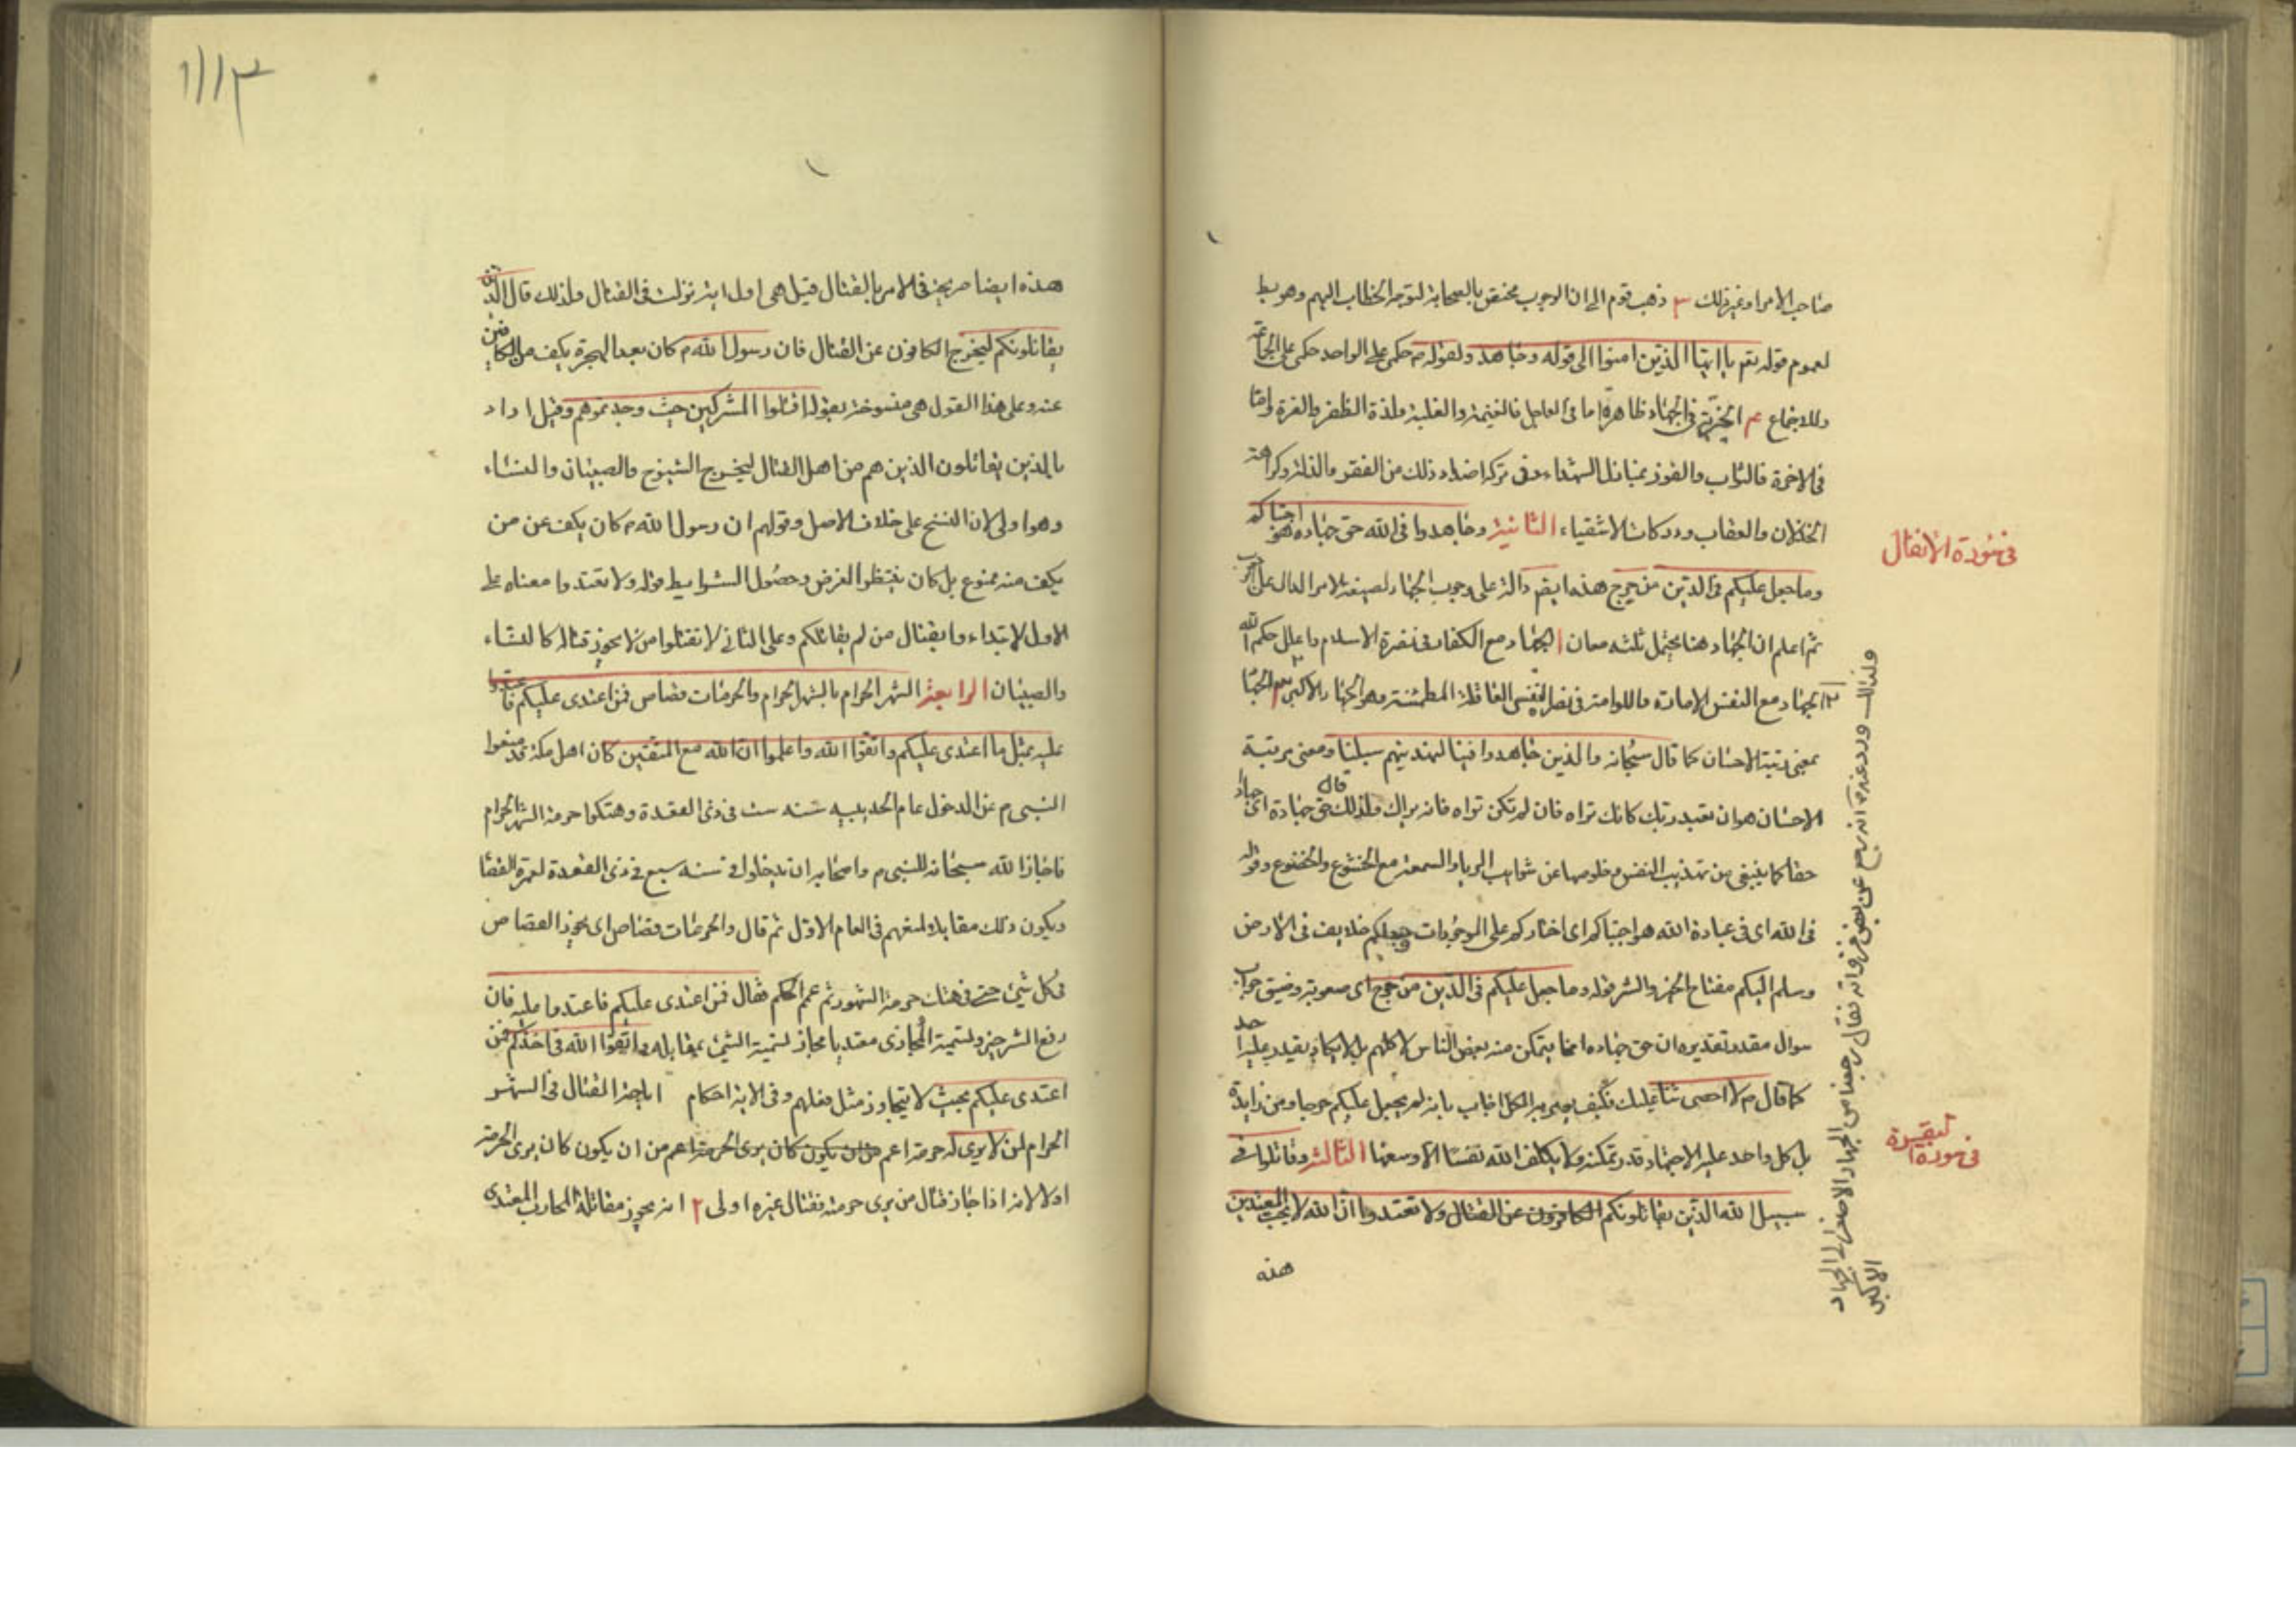 صاحب الامر او غير ذلك ٣ ذهب قوم الى ان الوجوب مختص بالصحابة لتوجه الخطاب اليهم وهو بط
لعموم قوله تعم يا ايها الذين امنوا الى قوله وجاهد ولقوله م حكمى على الواحد حكمى على الجماعة
وللاجماع ٤ الخيرية فى الجهاد ظاهرة اما فى العاجل فالغنيمة والغلبة ولذة الظفر والعزة واما
فى الاخرة فالثواب والفوز بمنازل الشهداء وفى تركه اضداد ذلك من الفقر والذلة وكراهة
الخذلان والعقاب ودركات الاشقياء الثانية وجاهدوا فى الله حق جهاده هو اجتباكم
وما جعل عليكم فى الدين من حرج هذه ايضم دالة على وجوب الجهاد لصيغة الامر الدال على الوجوب
ثم اعلم ان الجهاد هنا يحتمل ثلثه معان ا الجهاد مع الكفار فى نصرة الاسلام واعلال حكم الله
٢ الجهاد مع النفس الامارة واللوامة فى نصرة النفس العاقلة المطمئنة وهو الجهاد الاكبر ٣ الجها
بمعنى رتبة الاحسان كما قال سبحانه والذين جاهدوا فينا لنهدينهم سبلنا ومعنى رتبة
الاحسان هو ان تعبد ربك كانك تراه فان لم تكن تراه فانه يراك ولذلك قال حق جهاده اى جهاداً
حقا كما ينبغى من تهذيب النفس وخلوصها عن شوايب الريا والسمعة مع الخشوع والخضوع وقوله
فى الله اى فى عبادة الله هو اجتباكم اى اختاركم على الموجودات وجعلكم خلايف فى الارض
وسلم اليكم مفتاح الخير والشر قوله وما جعل عليكم فى الدين من حرج اى صعوبة وضيق جواب
سوال مقدر تقديره ان حق جهاده انما يتمكن منه بعض الناس لا كلهم بل لا يكاد يقدر عليه احد
كما قال م لا احصى ثناء عليك فكيف يوم به الكل اجاب بانه لم يجعل عليكم حرجا ومن زايدة
بل كل واحد عليه الاجتهاد قدر تمكنه ولا يكلف الله نفسا الا وسعها الثالثة وقاتلوا فى
سبيل الله الذين يقاتلونكم الكافرون عن القتال ولا تعتدوا ان الله لا يحب المعتدين
هذه
فى سورة الانفال
فى سورة البقرة
ولذلك ورد عنه م انه رجع عن بعض غزواته فقال رجعنا من الجهاد الاصغر الى الجهاد
الاكبر
١١١٣
هذه ايضا صريحة فى الامر بالقتال قيل هى اول اية نزلت فى القتال ولذلك قال الذين
يقاتلونكم ليخرج الكافون عن القتال فان رسول الله م كان بعد الهجرة يكف عن الكافين
عنه وعلى هذا القول هى منسوخة بقوله اقتلوا المشركين حيث وجدتموهم وقيل اراد
بالذين يقاتلون الذين هم من اهل القتال ليخرج الشيوخ والصبيان والنساء
وهو اولى لان النسخ على خلاف الاصل وقولهم ان رسول الله م كان يكف عن من
يكف منه ممنوع بل كان ينتظر الفرض وحصول الشرايط قوله ولا تعتدوا معناه على
الاول لابتداء وا بقتال من لم يقاتلكم وعلى الثانى لا تقتلوا من لا يجوز قتاله كالنساء
والصبيان الرابعة الشهر الحرام بالشهر الحرام والحرمات قصاص فمن اعتدى عليكم فاعتدوا
عليه بمثل ما اعتدى عليكم واتقوا الله واعلموا ان الله مع المتقين كان اهل مكة قد منعوا
النبى م عن الدخول عام الحديبيه سنه ست فى ذى القعدة وهتكوا حرمة الشهر الحرام
فاجاز الله سبحانه للنبى م واصحابه ان يدخلوا فى سنه سبع فى ذى القعدة لعمرة القضا
ويكون ذلك مقابلا لمنعهم فى العام الاول ثم قال والحرمات قصاص اى يجوز القصاص
فى كل شئ حتى فى هتك حرمة الشهور ثم عمم الحكم فقال فمن اعتدى عليكم فاعتدوا عليه فان
دفع الشر خير ولتسمية المجازى معتديا مجاز لتسمية الشئ بمقابله واتقوا الله فى اخذكم فمن
اعتدى عليكم بحيث لا يتجاوز مثل فعلهم وفى الاية احكام ا اباحة القتال فى الشهر
الحرام لمن لا يرى له حرمة اعم من ان يكون كان يرى الحرمة اعم من ان يكون كان يرى الحرمة
اولا لانه اذا جاز قتال من يرى حرمته فقتال غيره اولى ٢ انه يجوز مقاتلة المحارب المعتدى